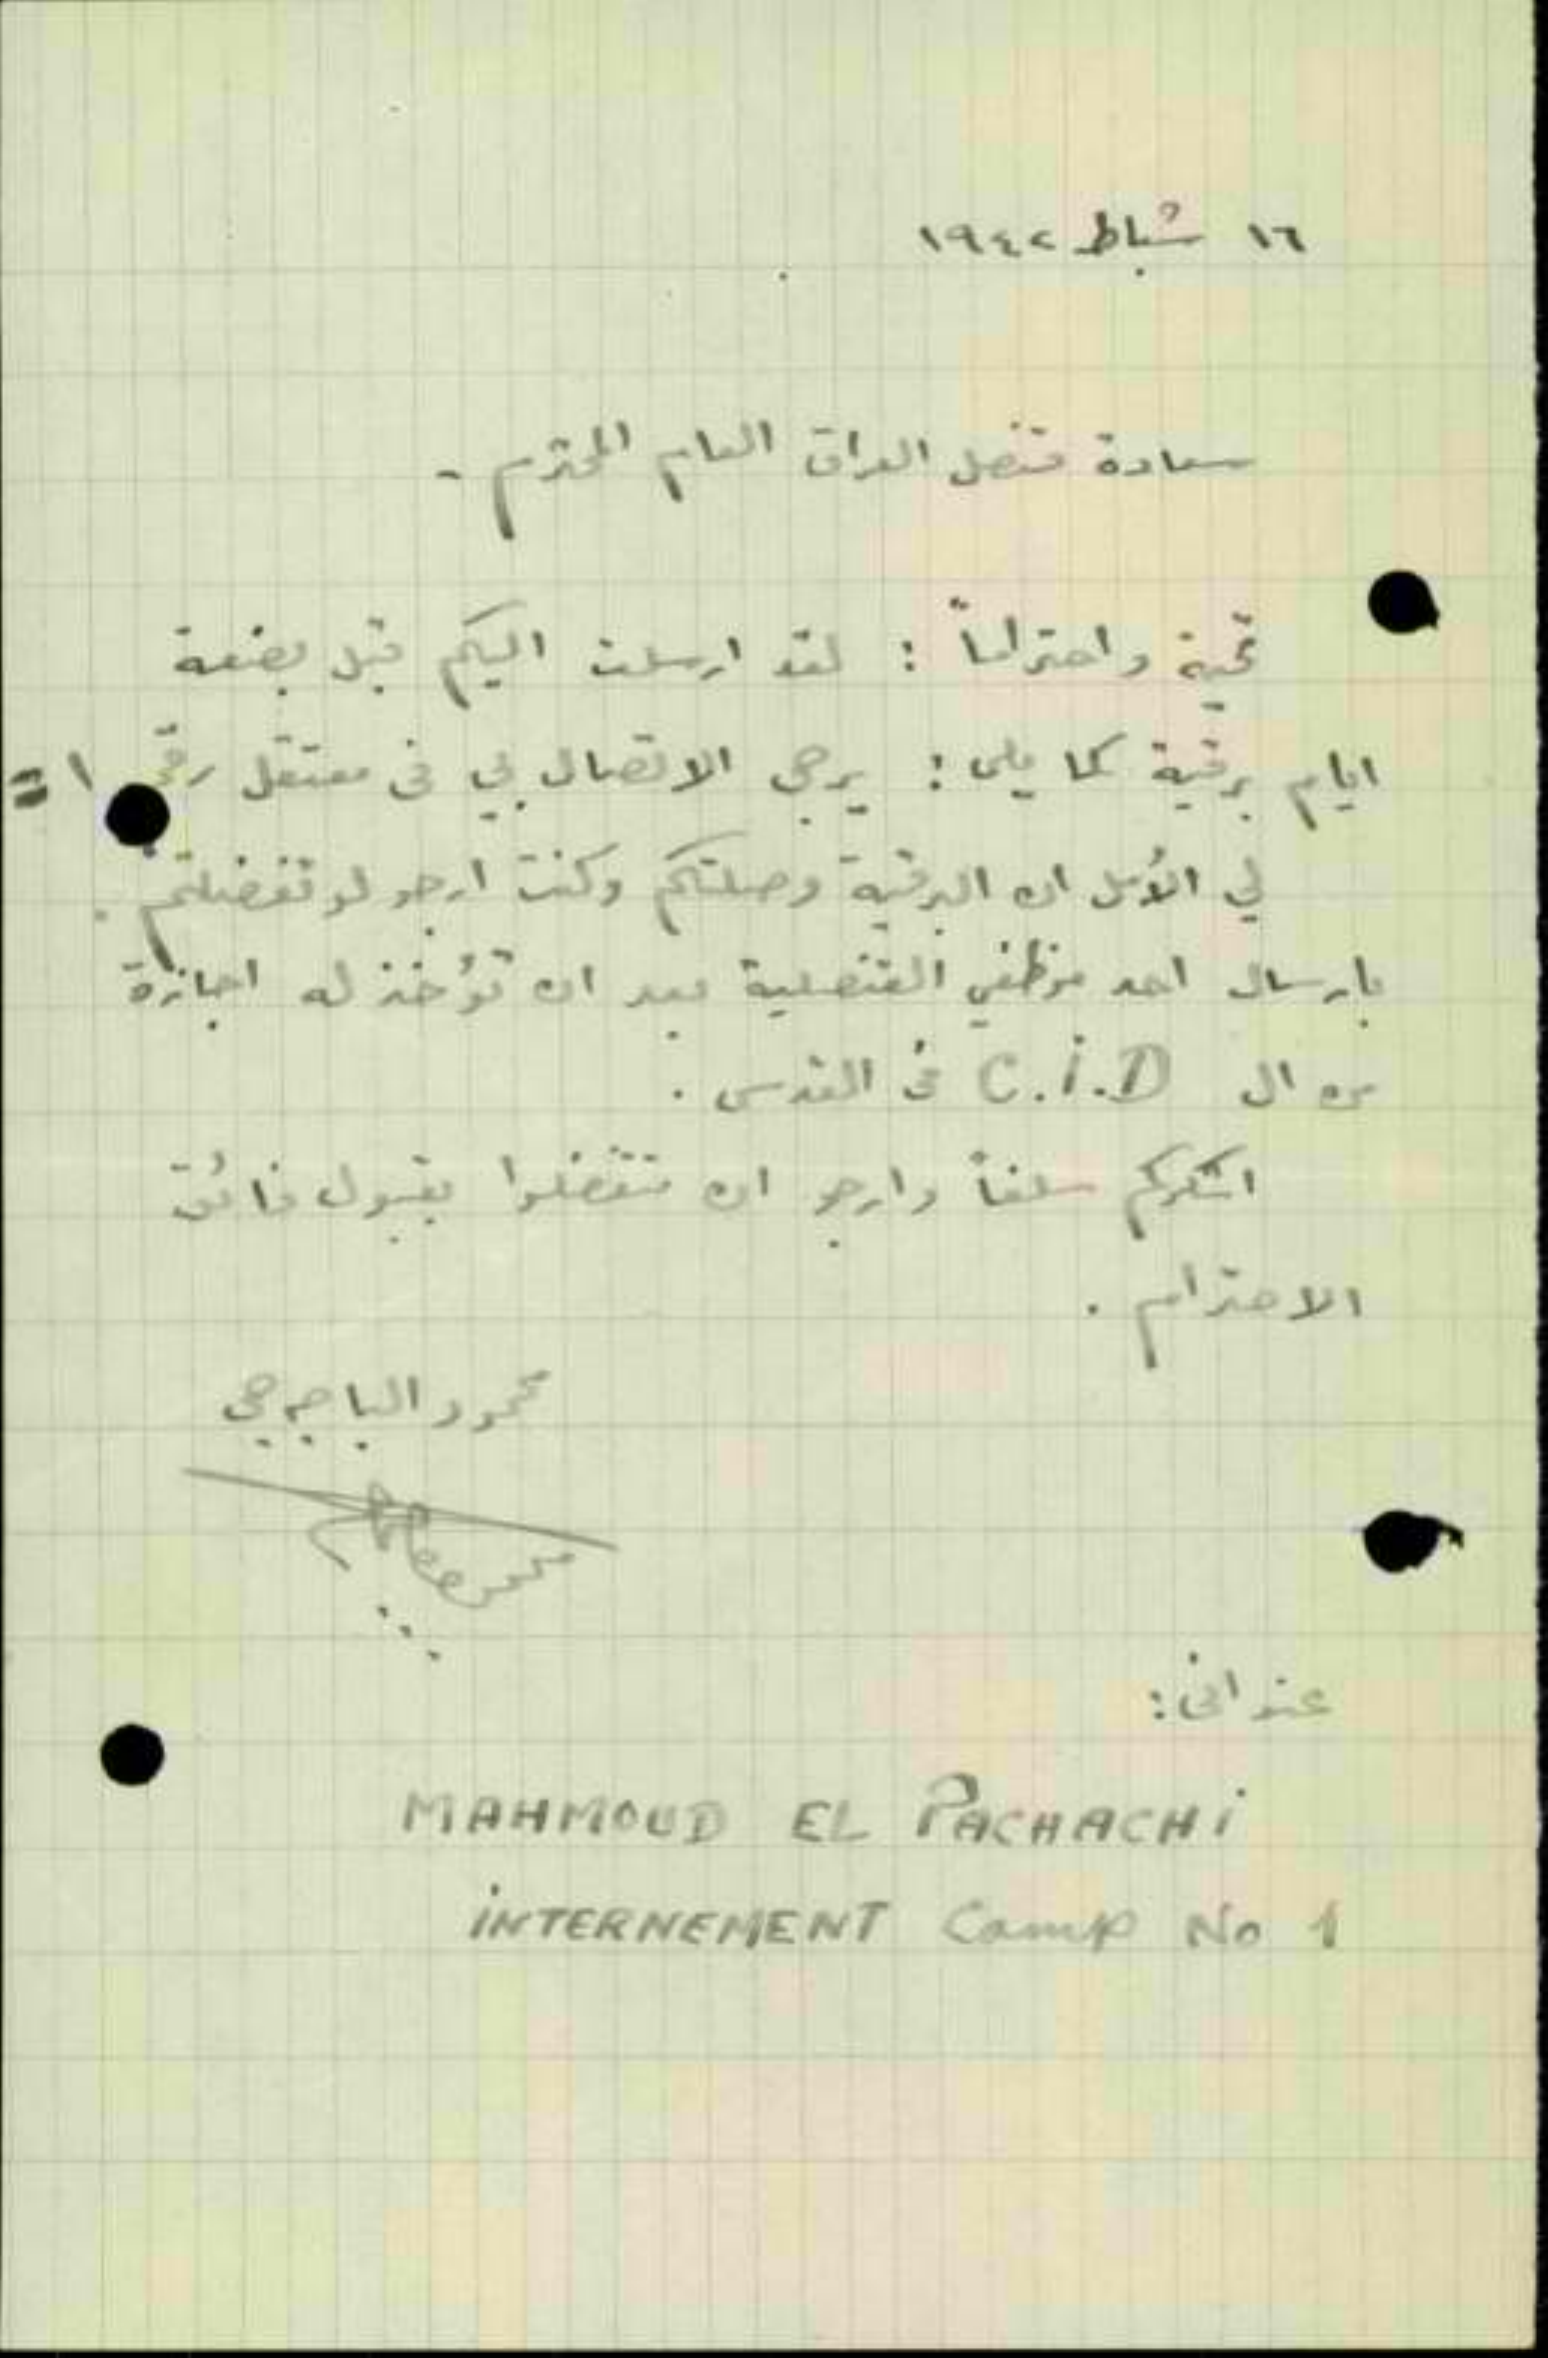 ١٦ شباط ١٩٤٢
سعادة قنصل العراق العام المحترم -
تحية واحتراماً : لقد ارسلت اليكم قبل بضعة
ايام برقية كما يلي : يرجى الاتصال بي في معتقل رقم ١ =
لي الأمل ان البرقية وصلتكم وكنت ارجو لو تفضلتم .
بارسال احد موظفي القنصلية بعد ان تؤخذ له اجازة
من ال C.I.D في القدس .
اشكركم سلفاً وارجو ان تتفضلوا بقبول فائق
الاحترام .
محمود الباجه جي
عنواني :
MAHMOUD EL PACHACHI
INTERNEMENT Camp No 1